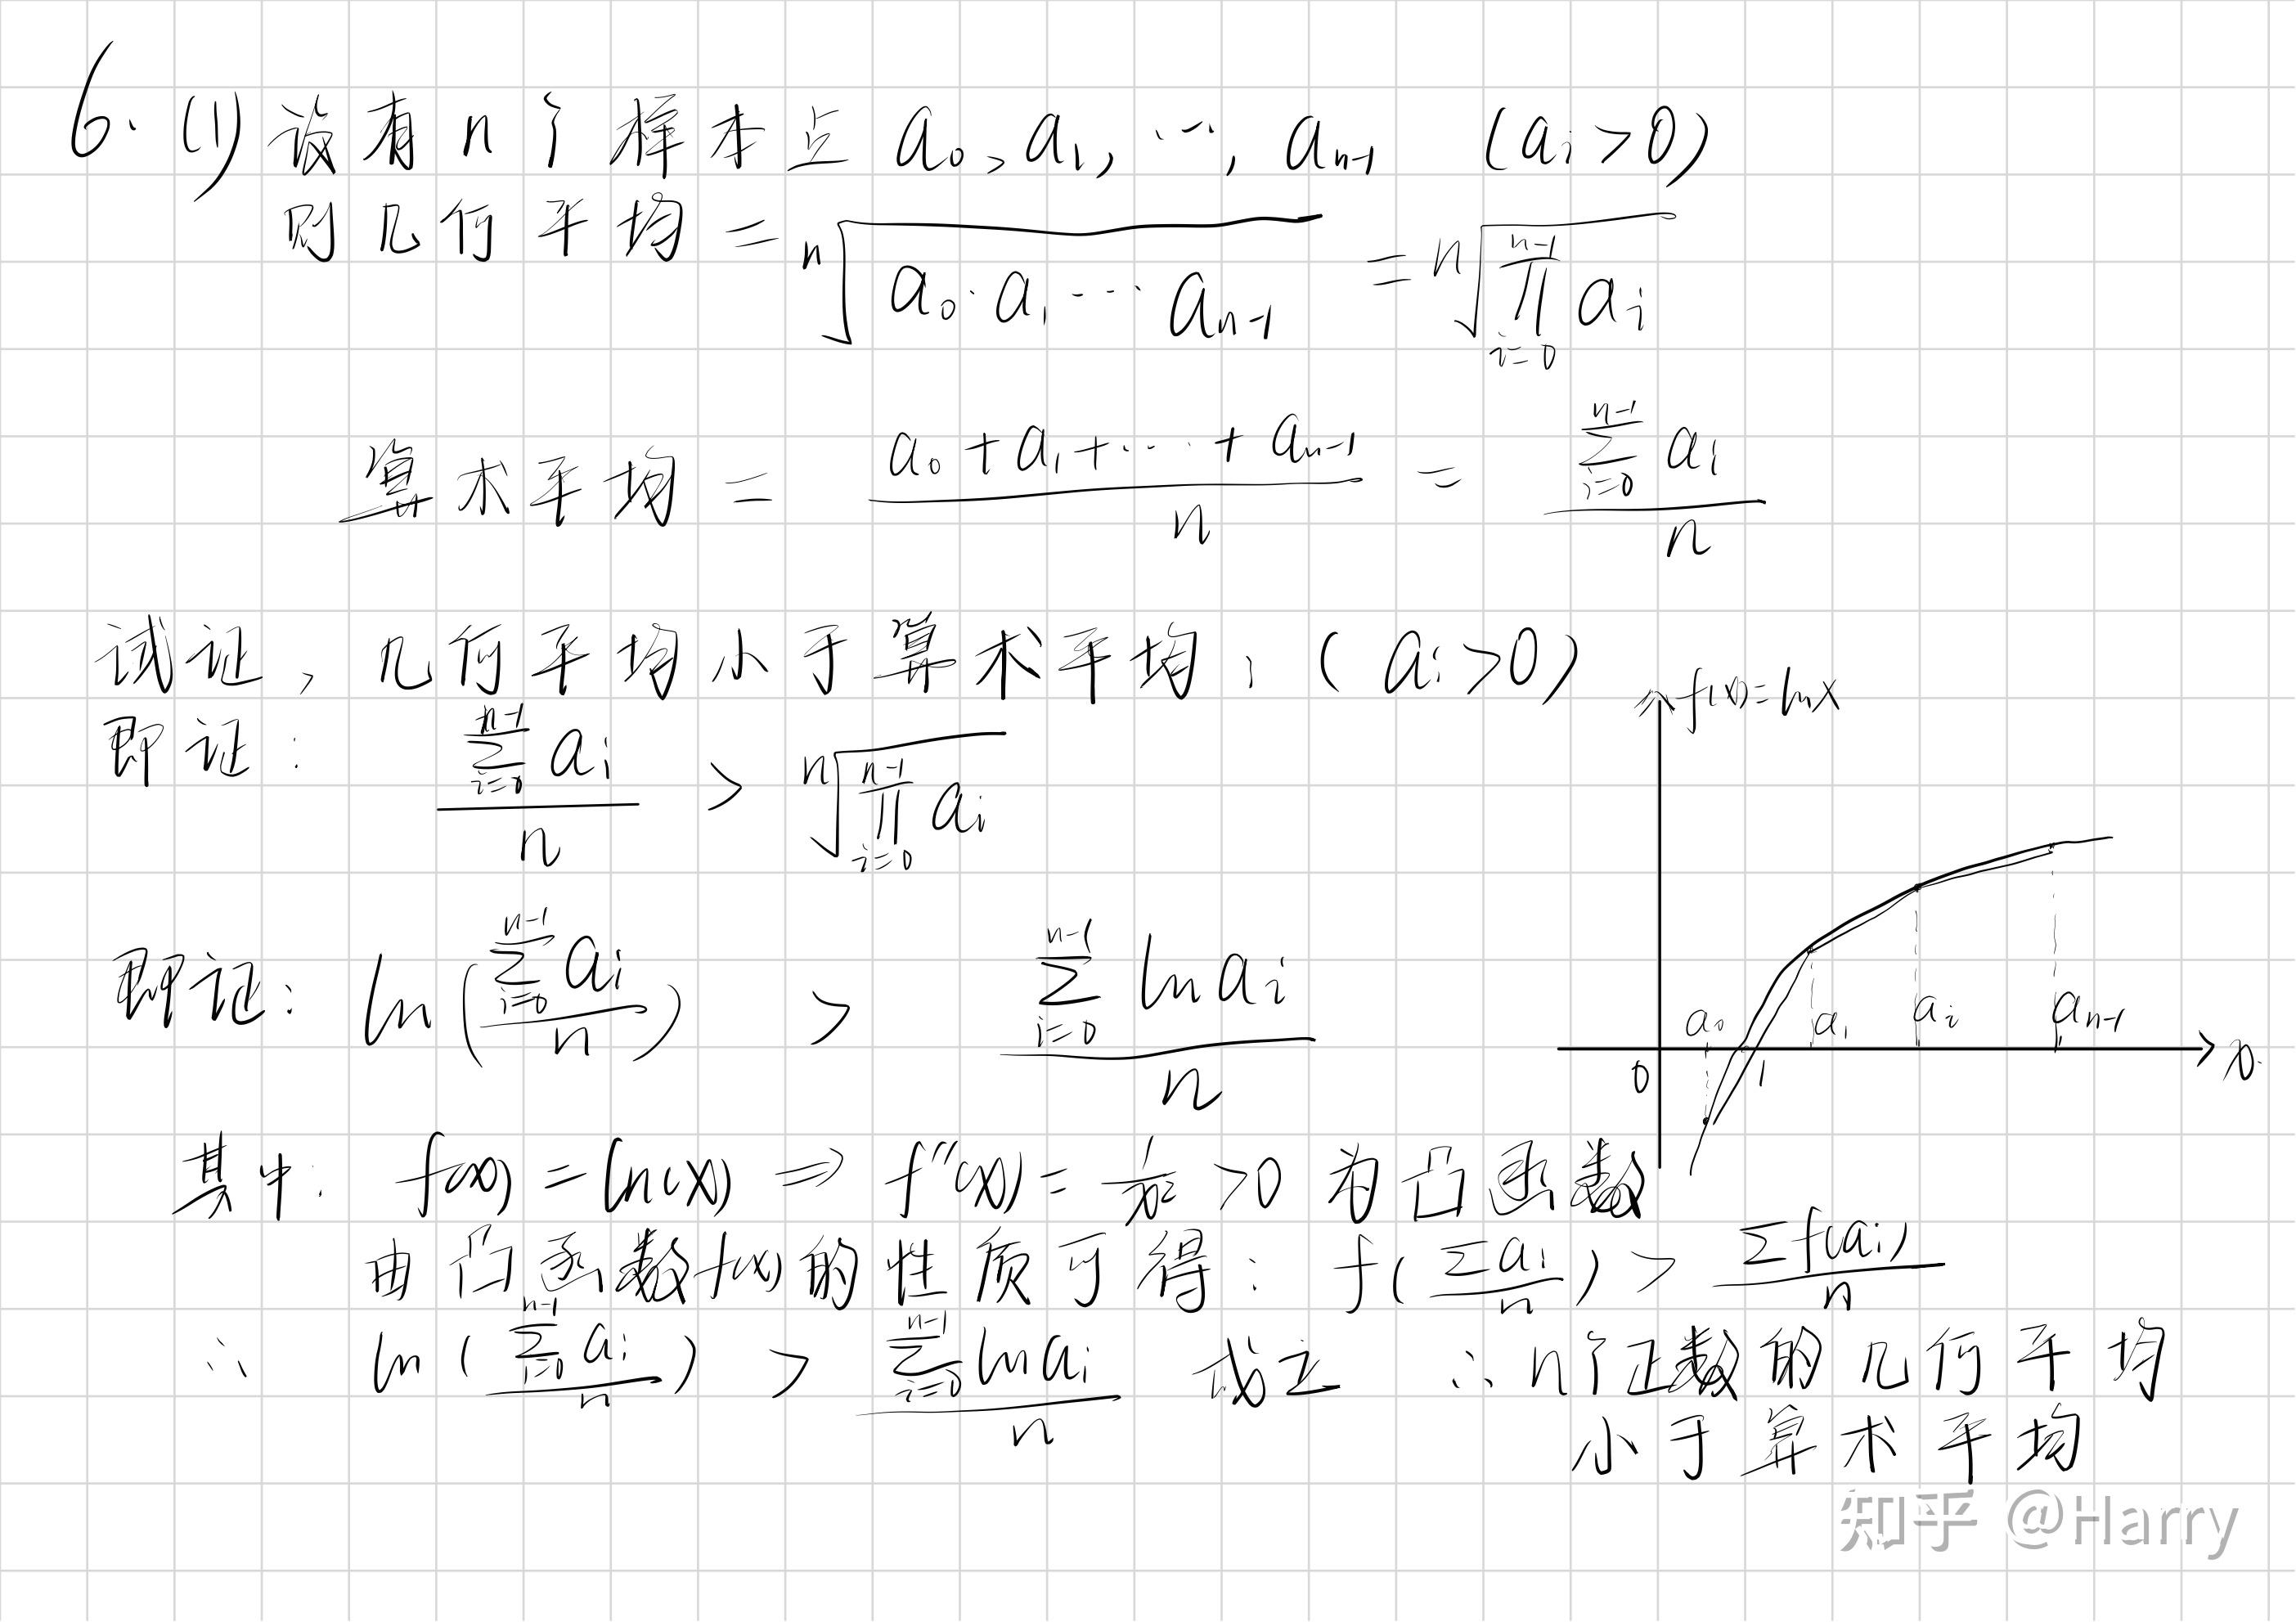 6. (1) 设有 n 个样本点 a₀、a₁, …, aₙ₋₁ (aᵢ>0)
则几何平均 = ⁿ√(a₀·a₁·…·aₙ₋₁) = ⁿ√(∏ᵢ₌₀ⁿ⁻¹ aᵢ)
算术平均 = (a₀+a₁+…+aₙ₋₁)/n = (∑ᵢ₌₀ⁿ⁻¹ aᵢ)/n
试证, 几何平均小于算术平均: (aᵢ>0)
即证: (∑ᵢ₌₀ⁿ⁻¹ aᵢ)/n > ⁿ√(∏ᵢ₌₀ⁿ⁻¹ aᵢ)
f(x)=lnx
即证: ln((∑ᵢ₌₀ⁿ⁻¹ aᵢ)/n) > (∑ᵢ₌₀ⁿ⁻¹ lnaᵢ)/n
a₀ a₁ aᵢ aₙ₋₁
0 1 x
其中: f(x)=ln(x) ⇒ f''(x)=1/x²>0 为凸函数
由凸函数f(x)的性质可得: f((∑aᵢ)/n) > (∑f(aᵢ))/n
∴ ln((∑ᵢ₌₀ⁿ⁻¹ aᵢ)/n) > (∑ᵢ₌₀ⁿ⁻¹ lnaᵢ)/n 成立 ∴ n个正数的几何平均
小于算术平均
知乎 @Harry